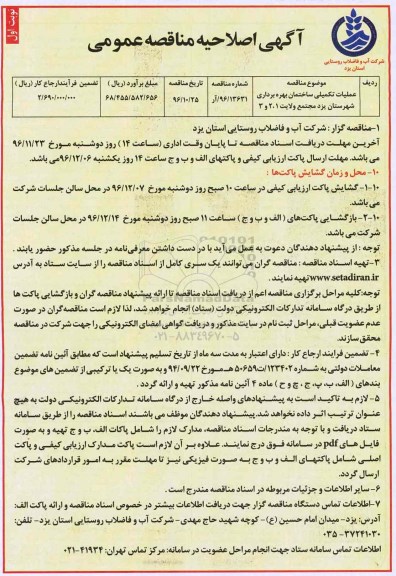 نوبت اول
آگهی اصلاحیه مناقصه عمومی
شرکت آب و فاضلاب روستایی
استان یزد
ردیف موضوع مناقصه شماره مناقصه تاریخ مناقصه مبلغ برآورد (ریال) تضمین فرآیندارجاع کار (ریال)
۱ عملیات تکمیلی ساختمان بهره برداری شهرستان یزد مجتمع ولایت ۲،۱ و ۳ ۹۶/۱۳۶۳۱/آر ۹۶/۱۰/۲۵ ۶۸/۴۵۵/۵۸۲/۶۵۶ ۲/۶۹۰/۰۰۰/۰۰۰
۱-مناقصه گزار : شرکت آب و فاضلاب روستایی استان یزد
آخرین مهلت دریافت اسناد مناقصه تا پایان وقت اداری (ساعت ۱۴ ) روز دوشنبه مورخ ۹۶/۱۱/۲۳
می باشد. مهلت ارسال پاکت ارزیابی کیفی و پاکتهای الف و ب و ج ساعت ۱۴ روز یکشنبه ۹۶/۱۲/۰۶می باشد.
۱۰-محل و زمان گشایش پاکت‌ها :
۱-۱۰-گشایش پاکت ارزیابی کیفی در ساعت ۱۰ صبح روز دوشنبه مورخ ۹۶/۱۲/۰۷ در محل سالن جلسات شرکت
می باشد.
۲-۱۰-بازگشایی پاکت‌های (الف و ب و ج ) ساعت ۱۱ صبح روز دوشنبه مورخ ۹۶/۱۲/۱۴ در محل سالن جلسات
شرکت می باشد.
توجه : از پیشنهاد دهندگان دعوت به عمل می‌آید با در دست داشتن معرفی‌نامه در جلسه مذکور حضور یابند .
۳-تهیه اسناد مناقصه : مناقصه گران می‌توانند یک سری کامل از اسناد مناقصه را از سایت ستاد به آدرس
www.setadiran.ir تهیه نمایند .
توجه:کلیه مراحل برگزاری مناقصه اعم از دریافت اسناد مناقصه تا ارائه پیشنهاد مناقصه گران و بازگشایی پاکت ها
از طریق درگاه سامانه تدارکات الکترونیکی دولت (ستاد) انجام خواهد شد، لذا لازم است مناقصه‌گران در صورت
عدم عضویت قبلی، مراحل ثبت نام در سایت مذکور و دریافت گواهی امضای الکترونیکی را جهت شرکت در مناقصه
محقق سازند.
۴- تضمین فرایند ارجاع کار : دارای اعتبار به مدت سه ماه از تاریخ تسلیم پیشنهاد است که مطابق آئین نامه تضمین
معاملات دولتی به شماره ۱۲۳۴۰۲/ت۵۰۶۵۹هـ مورخ ۹۴/۰۹/۲۲ و به صورت یک یا ترکیبی از تضمین های موضوع
بندهای ( الف، ب، پ، ج، چ و ح ) ماده ۴ آئین نامه مذکور تهیه و ارائه گردد .
۵- لازم به تاکید است به پیشنهادهای واصله خارج از درگاه سامانه تدارکات الکترونیکی دولت به هیچ
عنوان ترتیب اثر داده نخواهد شد.پیشنهاد دهندگان موظف می باشند اسناد مناقصه را از طریق سامانه
ستاد دریافت و با توجه به مندرجات اسناد مناقصه، مدارک لازم را شامل پاکات الف، ب و ج تهیه و به صورت
فایل های pdf در سامانه فوق درج نمایند. علاوه بر آن لازم است پاکت مدارک ارزیابی کیفی و پاکت
اصلی شامل پاکتهای الف و ب و ج به صورت فیزیکی نیز تا مهلت مقرر به امور قراردادهای شرکت
ارسال گردد.
۶- سایر اطلاعات و جزئیات مربوطه در اسناد مناقصه مندرج است .
۷-اطلاعات تماس دستگاه مناقصه گزار جهت دریافت اطلاعات بیشتر در خصوص اسناد مناقصه و ارائه پاکت الف:
آدرس: یزد- میدان امام حسین (ع)- کوچه شهید حاج مهدی - شرکت آب و فاضلاب روستایی استان یزد- تلفن:
۳۷۲۴۱۰۳۰ - ۰۳۵
اطلاعات تماس سامانه ستاد جهت انجام مراحل عضویت در سامانه: مرکز تماس تهران: ۴۱۹۳۴-۰۲۱